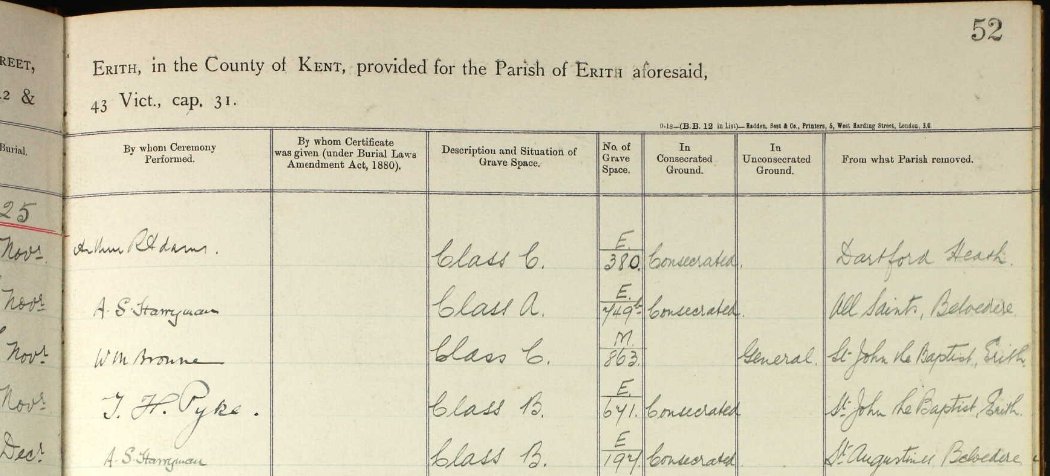 52
REET,
ERITH, in the County of KENT, provided for the Parish of ERITH aforesaid,
12 &
43 Vict., cap. 31.
9-18—(B.B. 12 in List)—Hadden, Best & Co., Printers, 5, West Harding Street, London, E.C.
Burial.
By whom Ceremony Performed.
By whom Certificate was given (under Burial Laws Amendment Act, 1880).
Description and Situation of Grave Space.
No. of Grave Space.
In Consecrated Ground.
In Unconsecrated Ground.
From what Parish removed.
25
Novr. Arthur R Adams. Class C. E. 380. Consecrated. Dartford Heath.
Novr. A. S Harryman Class A. E. 749b Consecrated. All Saints, Belvedere.
Novr. Wm Browne Class C. M. 863. General. St. John the Baptist, Erith.
Novr. T. H. Pyke. Class B. E. 641. Consecrated St. John the Baptist, Erith.
Decr. A. S. Harryman Class B. E 197 Consecrated. St. Augustines Belvedere